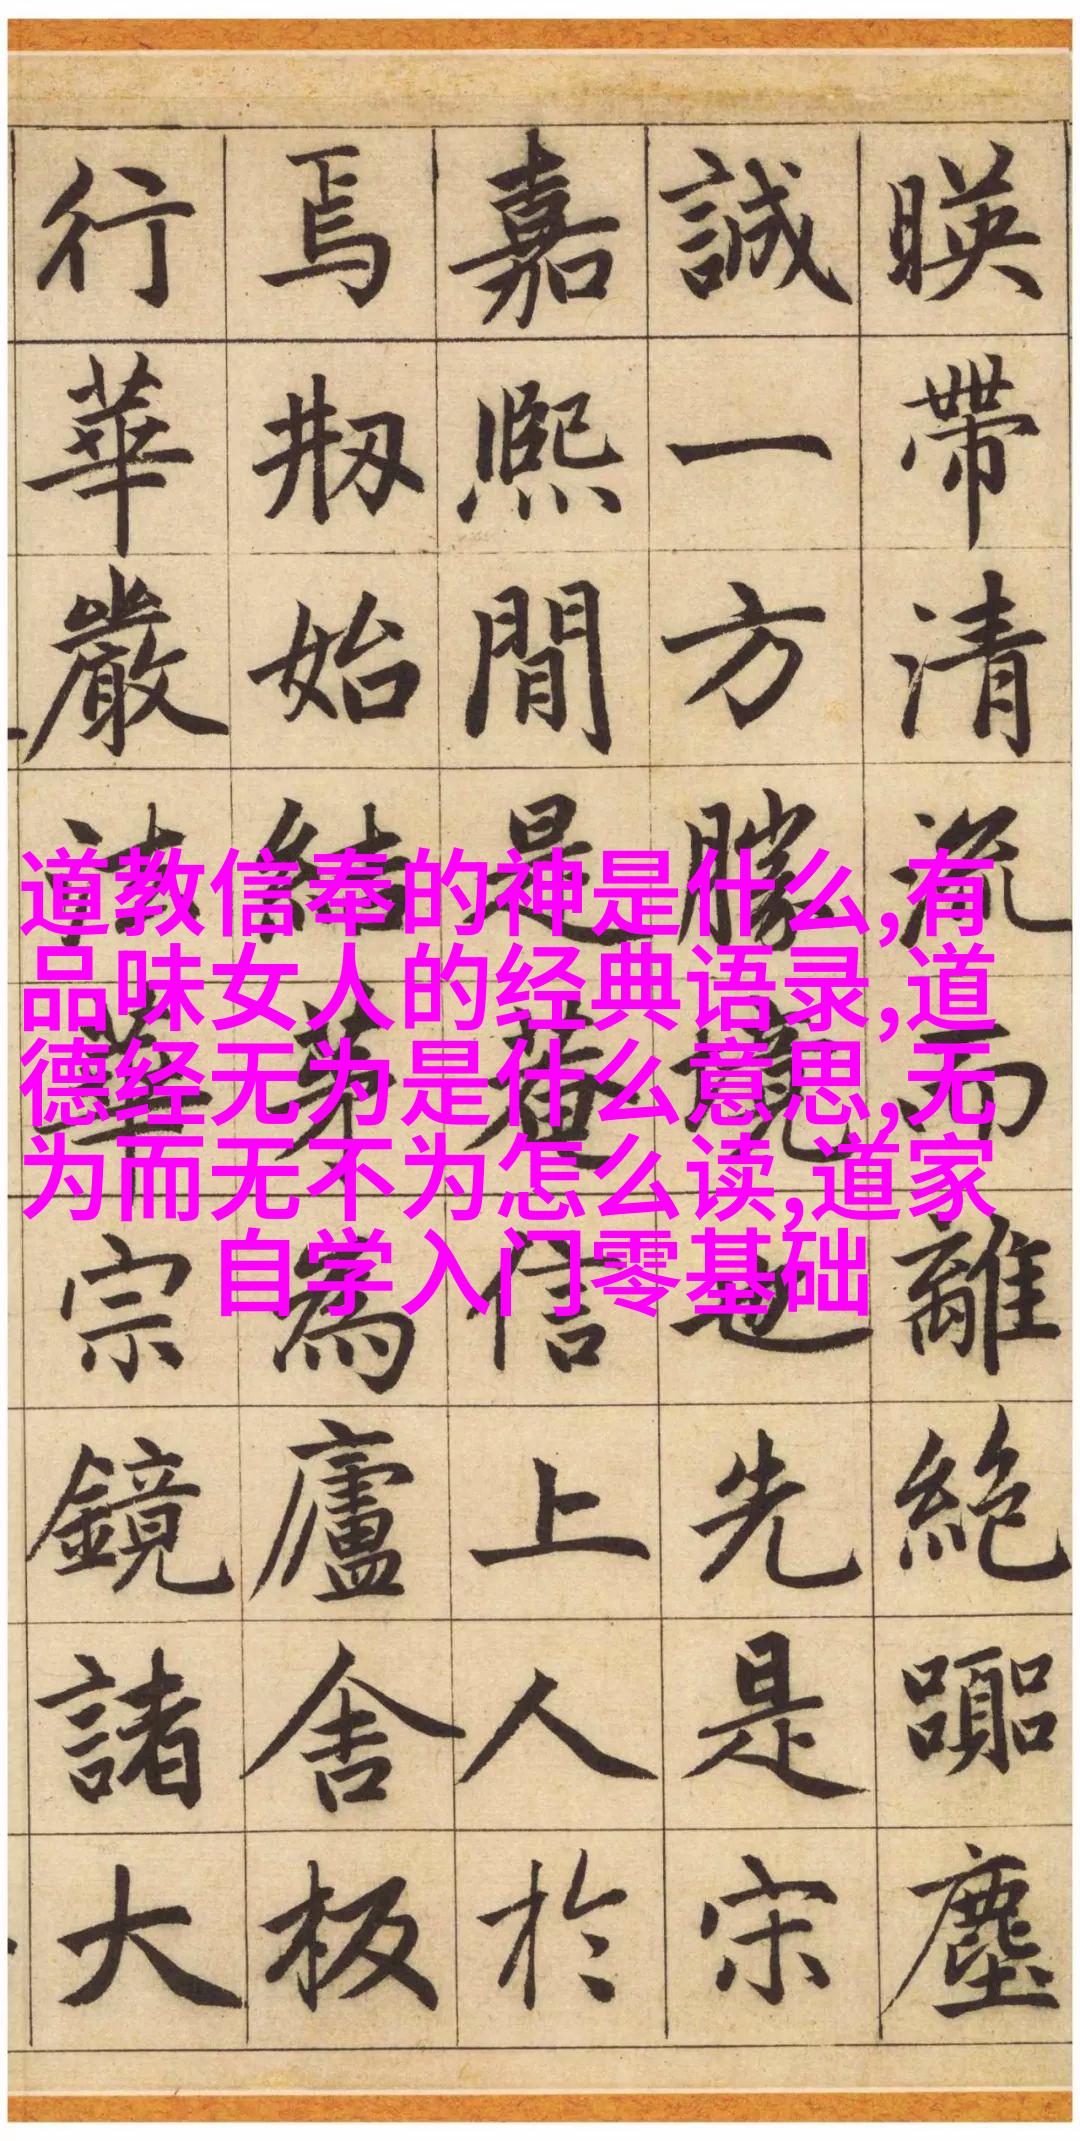 暎帶清流而離絶囂塵
誠一方勝境也先是宋
嘉熙間是菴信上人於
焉刱始結茅為廬舍板
行華嚴法華宗鏡諸大
道教信奉的神是什么,有
品味女人的经典语录,道
德经无为是什么意思,无
为而无不为怎么读,道家
自学入门零基础